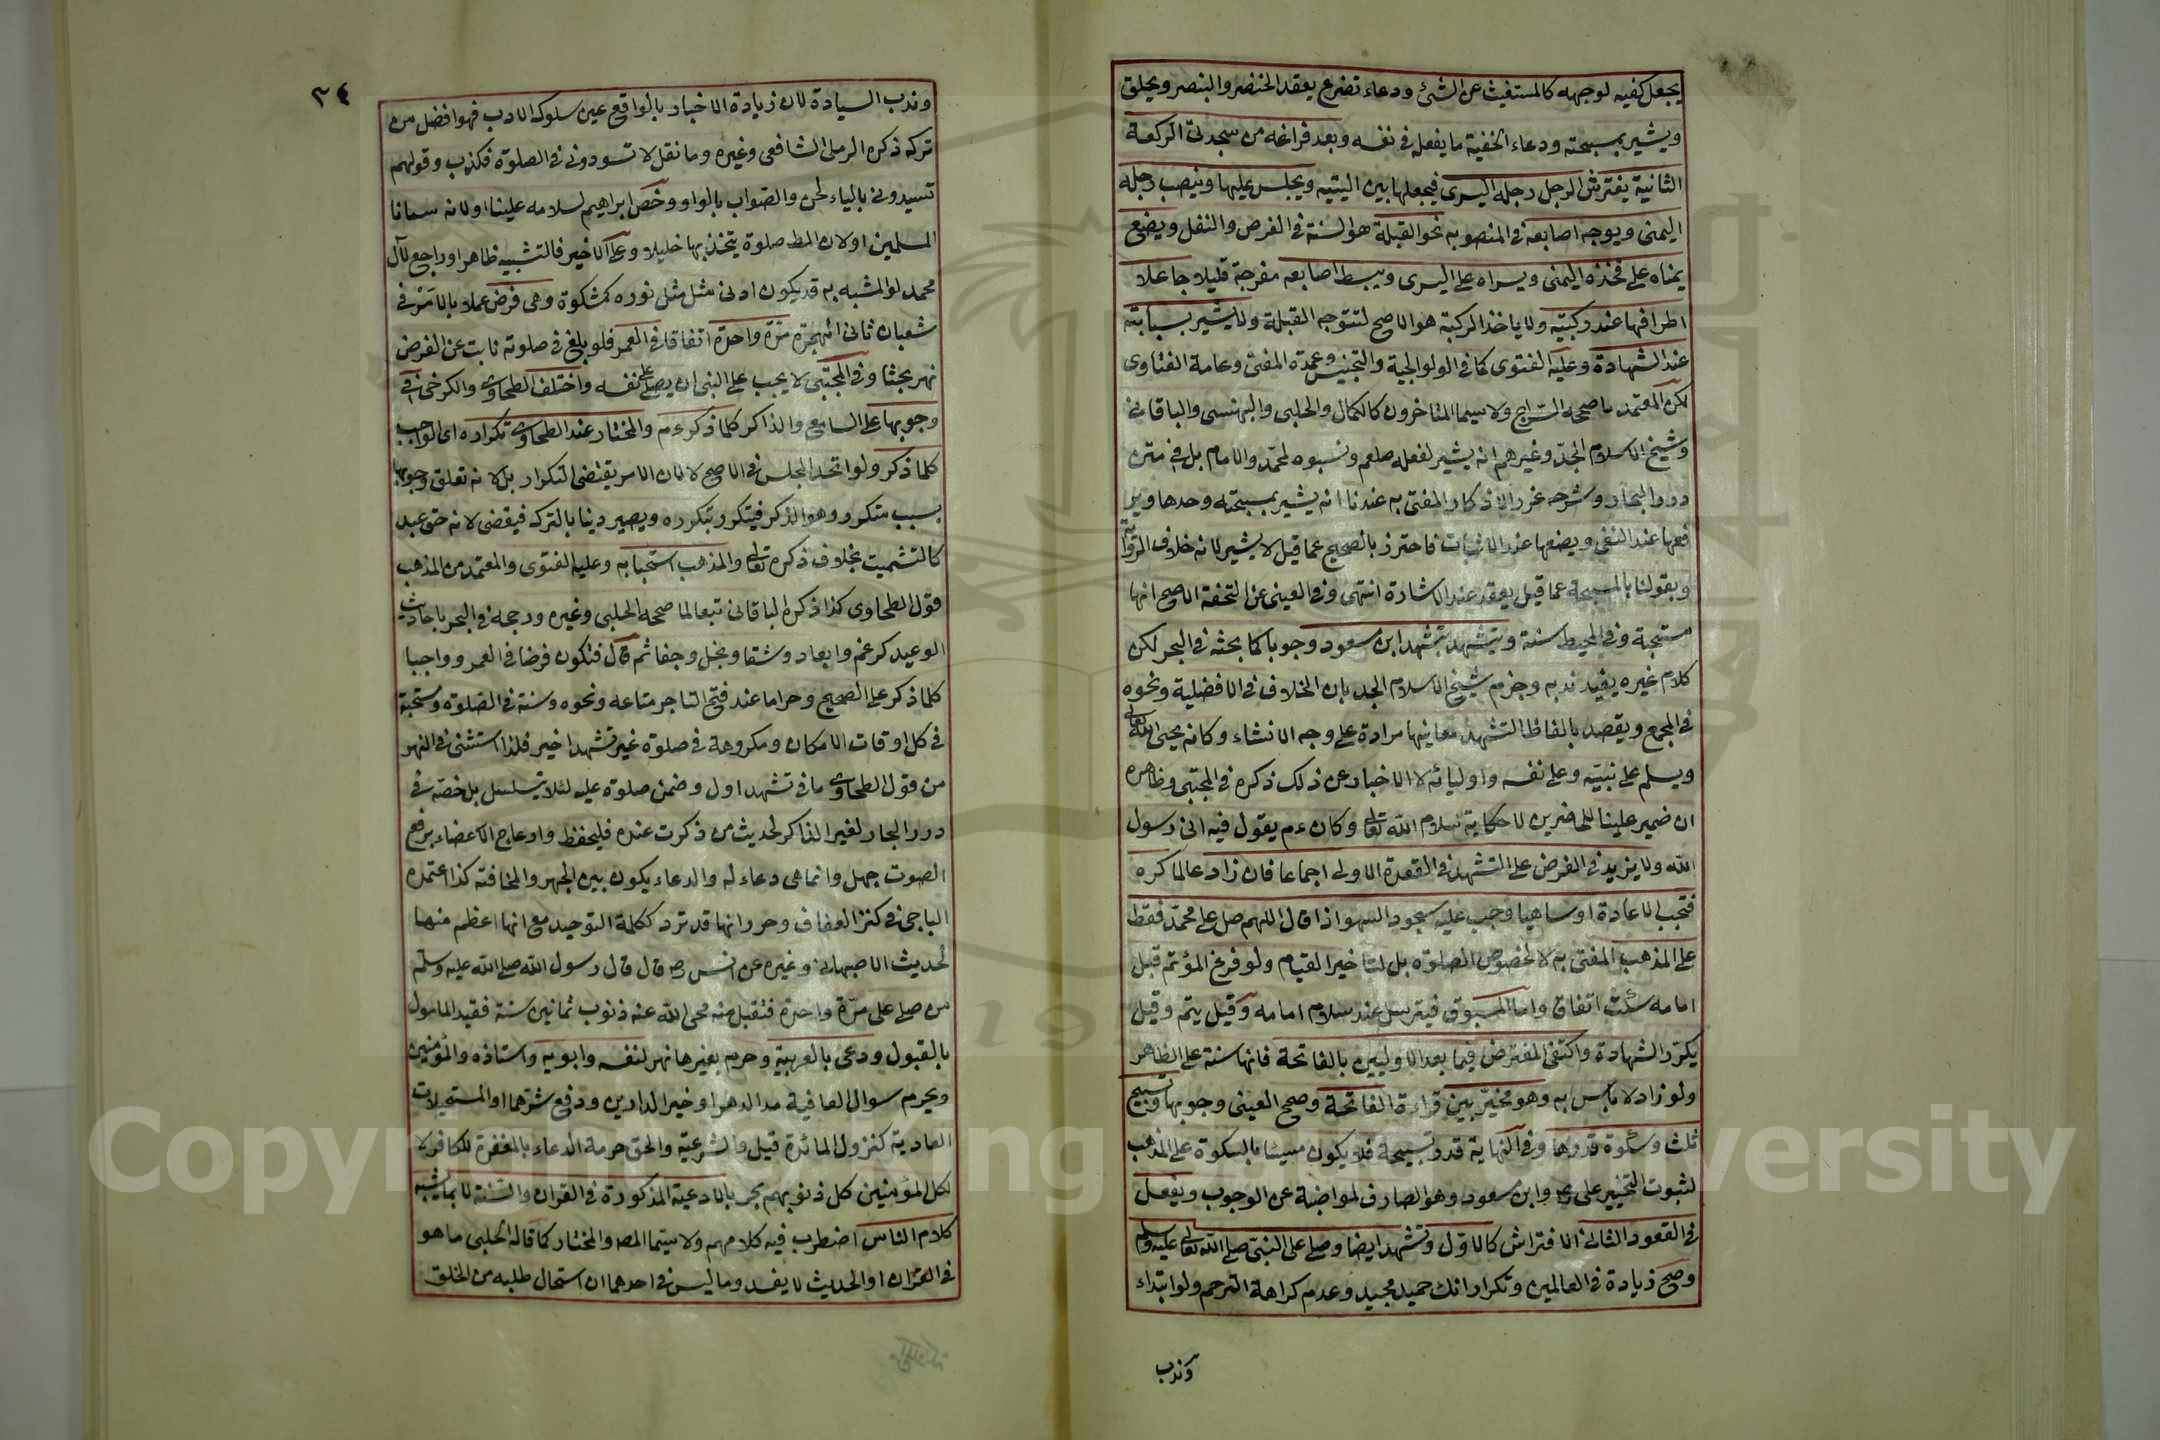 يجعل كفيه لوجهه كالمستغيث عن الشئ ودعاء تضرع يعقد الخنصر والبنصر ويحلق
ويشير بمسبحته ودعاء الخفية ما يفعله في نفسه وبعد فراغه من سجدتى الركعة
الثانية يفترش الرجل رجله اليسرى فيجعلها بين اليتيه ويجلس عليها وينصب رجله
اليمنى ويوجه اصابعه في المنصوبه نحو القبلة هو السنة في الفرض والنفل ويضع
يمناه على فخذه اليمنى ويسراه على اليسرى ويبسط اصابعه مفرجة قليلا جاعلا
اطرافها عند ركبتيه ولا ياخذ الركبة هو الاصح لتتوجه القبلة ولا يشير بسبابته
عند الشهادة وعليه الفتوى كما في الولوالجية والتجنيس وعمدة المفتى وعامة الفتاوى
لكن المعتمد ما صححه الشراح ولا سيما المتاخرون كالكمال والحلبى والبهنسى والباقانى
وشيخ الاسلام الجد وغيرهم انه يشير لفعله صلعم ونسبوه لمحمد والامام بل في متن
درر البحار وشرحه غرر الاذكار المفتى به عندنا انه يشير بمسبحته وحدها وير
فعها عند النفى ويضعها عند الاثبات فاحترز بالصحيح عما قيل لا يشير لانه خلاف الرواية
وبقولنا بالمسبحة عما قيل يعقد عند الاشارة انتهى وفي العينى عن التحفة الاصح انها
مستحبة وفي المحيط سنة ويتشهد بتشهد ابن مسعود وجوبا كما بحثه في البحر لكن
كلام غيره يفيد ندبه وجزم شيخ الاسلام الجد بان الخلاف في الافضلية ونحوه
في المجمع ويقصد بالفاظ التشهد معانيها مرادة على وجه الانشاء وكانه يحيى الله تعالى
ويسلم على نبيه وعلى نفسه واوليائه لا الاخبار عن ذلك ذكره في المجتبى وظاهره
ان ضمير علينا للحاضرين لا حكاية سلام الله تعالى وكان ءم يقول فيه انى رسول
الله ولا يزيد في الفرض على التشهد في القعدة الاولى اجماعا فان زاد عالما كره
فتجب الاعادة او ساهيا وجب عليه سجود السهو اذا قال اللهم صل على محمد فقط
على المذهب المفتى به لا لخصوص الصلوة بل لتاخير القيام ولو فرغ المؤتم قبل
امامه سكت اتفاق واما المسبوق فيترسل عند سلام امامه وقيل يتم وقيل
يكرر الشهادة واكتفى المفترض فيما بعد الاوليين بالفاتحة فانها سنة على الظاهر
ولو زاد لا باس به وهو مخير بين قراءة الفاتحة وصحح العينى وجوبها وتسبيح
ثلث وسكوة قدرها وفي النهاية قدر تسبيحة فلا يكون مسيئا بالسكوة على المذهب
لثبوت التخيير على رض وابن مسعود وهو الصارف لمواضبة عن الوجوب ويفعل
في القعود الثانى الافتراش كالاول وتشهد ايضا وصلى على النبى صلى الله تعالى عليه وسلم
وصح زيادة في العالمين وتكرار انك حميد مجيد وعدم كراهة الترحم ولو ابتداء
وندب
٣٤
وندب السيادة لان زيادة الاخبار بالواقع عين سلوك الادب فهو افضل من
تركه ذكره الرملى الشافعى وغيره وما نقل لا تسودونى في الصلوة فكذب وقولهم
تسيدونى بالياء لحن والصواب بالواو وخص ابراهيم لسلامه علينا او لانه سمانا
المسلمين او لان المط صلوة يتخذ بها خليلا وعلى الاخير فالتشبيه ظاهر او راجع لآل
محمد لو المشبه به قد يكون ادنى مثل مثل نوره كمشكوة وهى فرض عملا بالامر في
شعبان ثانى الهجرة مرة واحدة اتفاقا في العمر فلو بلغ في صلوته نابت عن الفرض
نهر بحثا وفي المجتبى لا يجب على النبى ان يصلى على نفسه واختلف الطحاوى والكرخى في
وجوبها على السامع والذاكر كلما ذكر ءم والمختار عند الطحاوى تكراره اى الواجب
كلما ذكر ولو اتحد المجلس في الاصح لا لان الامر يقتضى التكرار بل لانه تعلق وجوبها
بسبب متكرر وهو الذكر فيتكرر بتكرره ويصير دينا بالترك فيقضى لانه حق عبد
كالتشميت بخلاف ذكره تعالى والمذهب استحبابه وعليه الفتوى والمعتمد من المذهب
قول الطحاوى كذا ذكره الباقانى تبعا لما صححه الحلبى وغيره ورجحه في البحر باحاديث
الوعيد كرغم وابعاد وشقا وبخل وجفا ثم قال فتكون فرضا في العمر وواجبا
كلما ذكر على الصحيح وحراما عند فتح التاجر متاعه ونحوه وسنة في الصلوة ومستحبة
في كل اوقات الامكان ومكروهة في صلوة غير تشهد اخير فلذا استثنى في النهر
من قول الطحاوى ما في تشهد اول وضمن صلوة عليه لئلا يتسلسل بل خصه في
درر البحار لغير الذاكر لحديث من ذكرت عنده فليحفظ وازعاج الاعضاء برفع
الصوت جهل وانما هى دعاء له والدعاء يكون بين الجهر والمخافته كذا اعتمده
الباجى في كنز العفاف وحرر انها قد ترد ككلمة التوحيد مع انها اعظم منها
لحديث الاصبهانى وغيره عن انس رض قال قال رسول الله صلى الله عليه وسلم
من صلى على مرة واحدة فتقبل منه محى الله عنه ذنوب ثمانين سنة فقيد المامول
بالقبول ودعى بالعربية وحرم بغيرها نهر لنفسه وابويه واستاذه والمؤمنين
ويحرم سوال العافية مدا الدهر او خير الدارين ودفع شرهما او المستحيلات
العادية كنزول المائدة قيل والشرعية والحق حرمة الدعاء بالمغفرة للكافر لا
لكل المؤمنين كل ذنوبهم بحر بالادعية المذكورة في القران والسنة لا بما يشبه
كلام الناس اضطرب فيه كلامهم ولا سيما المص والمختار كما قاله الحلبى ما هو
في القران او الحديث لا يفسد وما ليس في احدهما ان استحال طلبه من الخلق